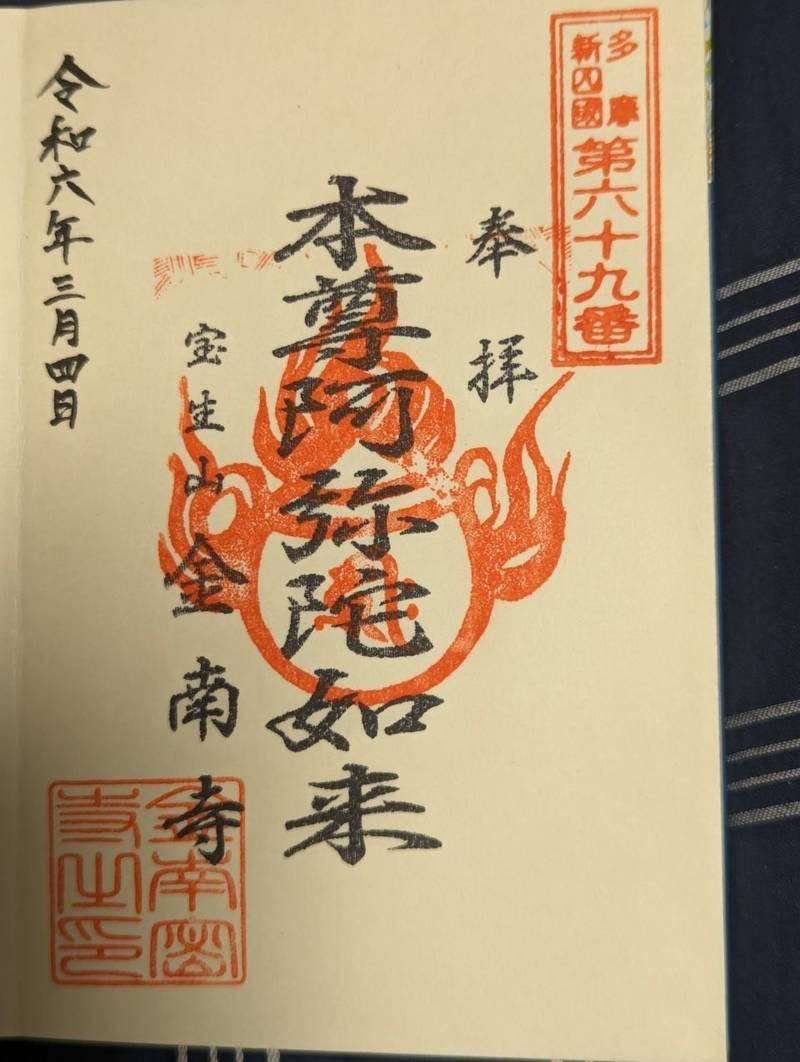 多摩
新四國
第六十九番
奉拝
本尊阿弥陀如来
宝生山 金南寺
令和六年三月四日
金南密
寺之印